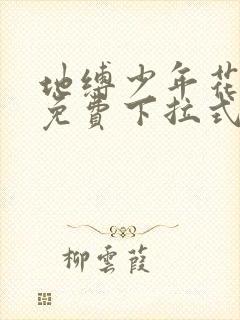 地缚少年花
免費下拉式
柳雲葭